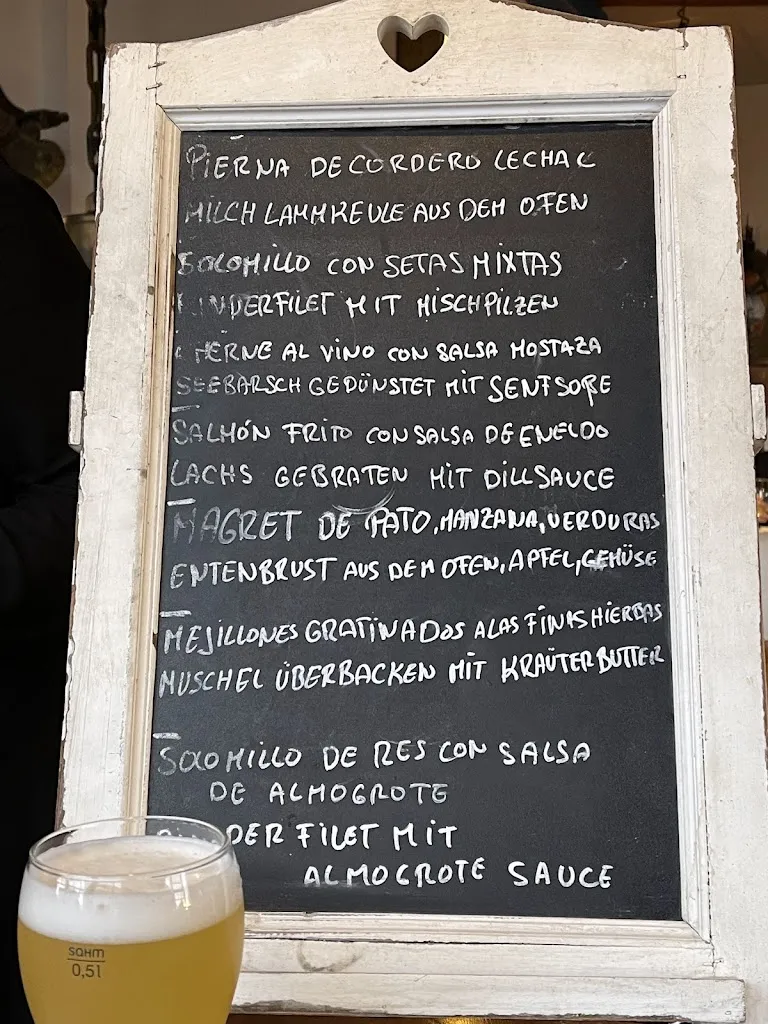 PIERNA DE CORDERO LECHAL
MILCH LAMMKEULE AUS DEM OFEN
SOLOMILLO CON SETAS MIXTAS
RINDERFILET MIT MISCHPILZEN
CHERNE AL VINO CON SALSA MOSTAZA
SEEBARSCH GEDÜNSTET MIT SENFSOßE
SALMÓN FRITO CON SALSA DE ENELDO
LACHS GEBRATEN MIT DILLSAUCE
MAGRET DE PATO, MANZANA, VERDURAS
ENTENBRUST AUS DEM OFEN, APFEL, GEMÜSE
MEJILLONES GRATINADOS A LAS FINAS HIERBAS
MUSCHEL ÜBERBACKEN MIT KRAÜTER BUTTER
SOLOMILLO DE RES CON SALSA
DE ALMOGROTE
DER FILET MIT
ALMOGROTE SAUCE
sahm
0,5l